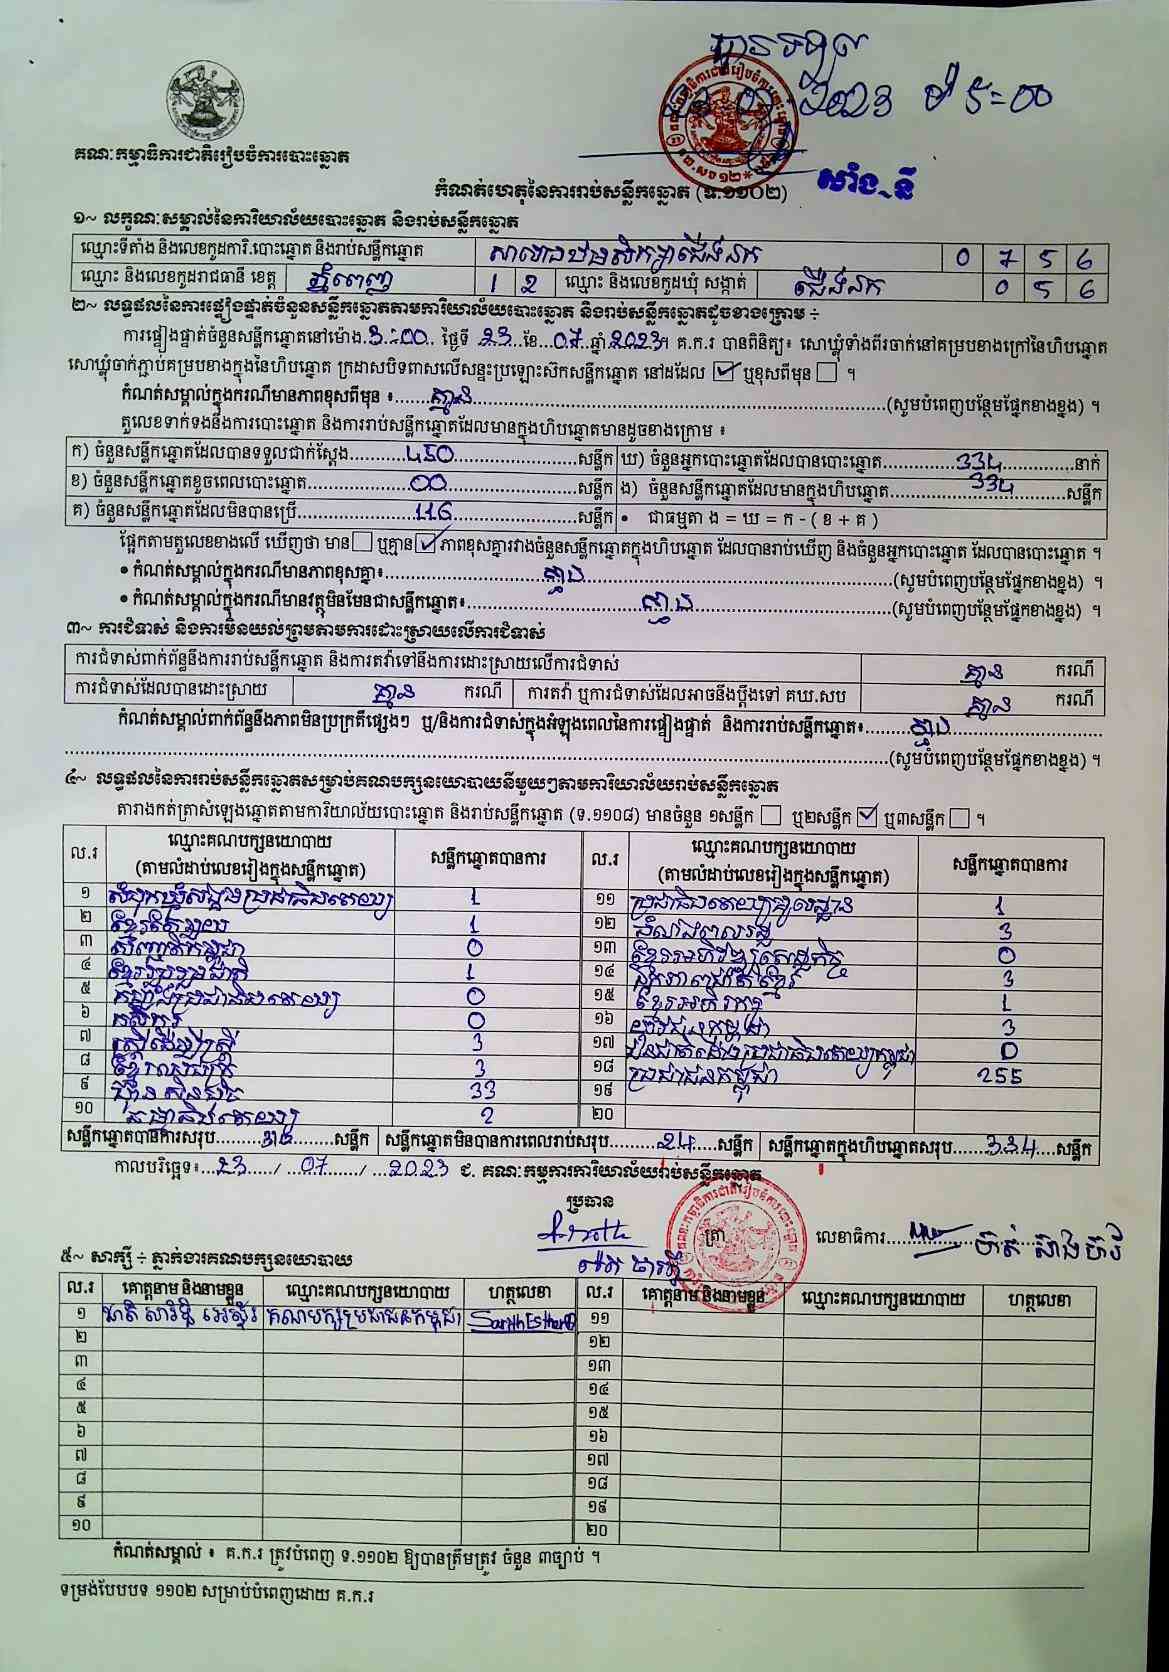 គណៈកម្មាធិការជាតិរៀបចំការបោះឆ្នោត
កំណត់ហេតុនៃការរាប់សន្លឹកឆ្នោត (ទ.១១០២)
១~ លក្ខណៈសម្គាល់នៃការិយាល័យបោះឆ្នោត និងរាប់សន្លឹកឆ្នោត
ឈ្មោះទីតាំង និងលេខកូដការិ.បោះឆ្នោត និងរាប់សន្លឹកឆ្នោត 0 7 5 6
ឈ្មោះ និងលេខកូដរាជធានី ខេត្ត ភ្នំពេញ 1 2 ឈ្មោះ និងលេខកូដឃុំ សង្កាត់ ជើងឯក 0 5 6
២~ លទ្ធផលនៃការផ្ទៀងផ្ទាត់ចំនួនសន្លឹកឆ្នោតតាមការិយាល័យបោះឆ្នោត និងរាប់សន្លឹកឆ្នោតដូចខាងក្រោម ÷
ការផ្ទៀងផ្ទាត់ចំនួនសន្លឹកឆ្នោតនៅម៉ោង 3:00 ថ្ងៃទី 23 ខែ 07 ឆ្នាំ 2023។ គ.ក.រ បានពិនិត្យ៖ សោឃ្លុំទាំងពីរចាក់នៅគម្របខាងក្រៅនៃហិបឆ្នោត
សោឃ្លុំចាក់ភ្ជាប់គម្របខាងក្នុងនៃហិបឆ្នោត ក្រដាសបិទពាសលើសន្ទះប្រឡោះស៊ីកសន្លឹកឆ្នោត នៅដដែល ☑ ឬខុសពីមុន ☐ ។
កំណត់សម្គាល់ក្នុងករណីមានភាពខុសពីមុន ៖ គ្មាន (សូមបំពេញបន្ថែមផ្នែកខាងខ្នង) ។
តួលេខទាក់ទងនឹងការបោះឆ្នោត និងការរាប់សន្លឹកឆ្នោតដែលមានក្នុងហិបឆ្នោតមានដូចខាងក្រោម ៖
ក) ចំនួនសន្លឹកឆ្នោតដែលបានទទួលជាក់ស្តែង 450 សន្លឹក ឃ) ចំនួនអ្នកបោះឆ្នោតដែលបានបោះឆ្នោត 334 នាក់
ខ) ចំនួនសន្លឹកឆ្នោតខូចពេលបោះឆ្នោត 00 សន្លឹក ង) ចំនួនសន្លឹកឆ្នោតដែលមានក្នុងហិបឆ្នោត 334 សន្លឹក
គ) ចំនួនសន្លឹកឆ្នោតដែលមិនបានប្រើ 116 សន្លឹក • ជាធម្មតា ង = ឃ = ក - ( ខ + គ )
ផ្អែកតាមតួលេខខាងលើ ឃើញថា មាន ☐ ឬគ្មាន ☑ ភាពខុសគ្នារវាងចំនួនសន្លឹកឆ្នោតក្នុងហិបឆ្នោត ដែលបានរាប់ឃើញ និងចំនួនអ្នកបោះឆ្នោត ដែលបានបោះឆ្នោត ។
• កំណត់សម្គាល់ក្នុងករណីមានភាពខុសគ្នា៖ គ្មាន (សូមបំពេញបន្ថែមផ្នែកខាងខ្នង) ។
• កំណត់សម្គាល់ក្នុងករណីមានវត្ថុមិនមែនជាសន្លឹកឆ្នោត៖ គ្មាន (សូមបំពេញបន្ថែមផ្នែកខាងខ្នង) ។
៣~ ការជំទាស់ និងការមិនយល់ព្រមតាមការដោះស្រាយលើការជំទាស់
ការជំទាស់ពាក់ព័ន្ធនឹងការរាប់សន្លឹកឆ្នោត និងការតវ៉ាទៅនឹងការដោះស្រាយលើការជំទាស់ គ្មាន ករណី
ការជំទាស់ដែលបានដោះស្រាយ គ្មាន ករណី ការតវ៉ា ឬការជំទាស់ដែលអាចនឹងប្តឹងទៅ គឃ.សប គ្មាន ករណី
កំណត់សម្គាល់ពាក់ព័ន្ធនឹងភាពមិនប្រក្រតីផ្សេងៗ ឬ/និងការជំទាស់ក្នុងអំឡុងពេលនៃការផ្ទៀងផ្ទាត់ និងការរាប់សន្លឹកឆ្នោត៖ គ្មាន
(សូមបំពេញបន្ថែមផ្នែកខាងខ្នង) ។
៤~ លទ្ធផលនៃការរាប់សន្លឹកឆ្នោតសម្រាប់គណបក្សនយោបាយនីមួយៗតាមការិយាល័យរាប់សន្លឹកឆ្នោត
តារាងកត់ត្រាសំឡេងឆ្នោតតាមការិយាល័យបោះឆ្នោត និងរាប់សន្លឹកឆ្នោត (ទ.១១០៨) មានចំនួន ១សន្លឹក ☐ ឬ២សន្លឹក ☑ ឬ៣សន្លឹក ☐ ។
ល.រ ឈ្មោះគណបក្សនយោបាយ (តាមលំដាប់លេខរៀងក្នុងសន្លឹកឆ្នោត) សន្លឹកឆ្នោតបានការ ល.រ ឈ្មោះគណបក្សនយោបាយ (តាមលំដាប់លេខរៀងក្នុងសន្លឹកឆ្នោត) សន្លឹកឆ្នោតបានការ
១ សំបុកឃ្មុំសង្គមប្រជាធិបតេយ្យ 1 ១១ ប្រជាធិបតេយ្យមូលដ្ឋាន 1
២ ខ្មែរតែមួយ 1 ១២ 3
៣ 0 ១៣ ខ្មែរអភិវឌ្ឍន៍សេដ្ឋកិច្ច 0
៤ ខ្មែររួបរួមជាតិ 1 ១៤ ឯកភាពជាតិខ្មែរ 3
៥ កម្លាំងប្រជាធិបតេយ្យ 0 ១៥ ខ្មែរអភិរក្ស 1
៦ កសិករ 0 ១៦ យុវជនកម្ពុជា 3
៧ ស្ត្រីដើម្បីស្ត្រី 3 ១៧ 0
៨ 3 ១៨ ប្រជាជនកម្ពុជា 255
៩ ហ៊្វុនស៊ិនប៉ិច 33 ១៩
១០ ធម្មាធិបតេយ្យ 2 ២០
សន្លឹកឆ្នោតបានការសរុប 310 សន្លឹក សន្លឹកឆ្នោតមិនបានការពេលរាប់សរុប 24 សន្លឹក សន្លឹកឆ្នោតក្នុងហិបឆ្នោតសរុប 334 សន្លឹក
កាលបរិច្ឆេទ៖ 23 / 07 / 2023 ជ. គណៈកម្មការការិយាល័យរាប់សន្លឹកឆ្នោត
ប្រធាន
ត្រា លេខាធិការ
៥~ សាក្សី ÷ ភ្នាក់ងារគណបក្សនយោបាយ
ល.រ គោត្តនាម និងនាមខ្លួន ឈ្មោះគណបក្សនយោបាយ ហត្ថលេខា ល.រ គោត្តនាម និងនាមខ្លួន ឈ្មោះគណបក្សនយោបាយ ហត្ថលេខា
១ គណបក្សប្រជាជនកម្ពុជា ១១
២ ១២
៣ ១៣
៤ ១៤
៥ ១៥
៦ ១៦
៧ ១៧
៨ ១៨
៩ ១៩
១០ ២០
កំណត់សម្គាល់ ៖ គ.ក.រ ត្រូវបំពេញ ទ.១១០២ ឱ្យបានត្រឹមត្រូវ ចំនួន ៣ច្បាប់ ។
ទម្រង់បែបបទ ១១០២ សម្រាប់បំពេញដោយ គ.ក.រ